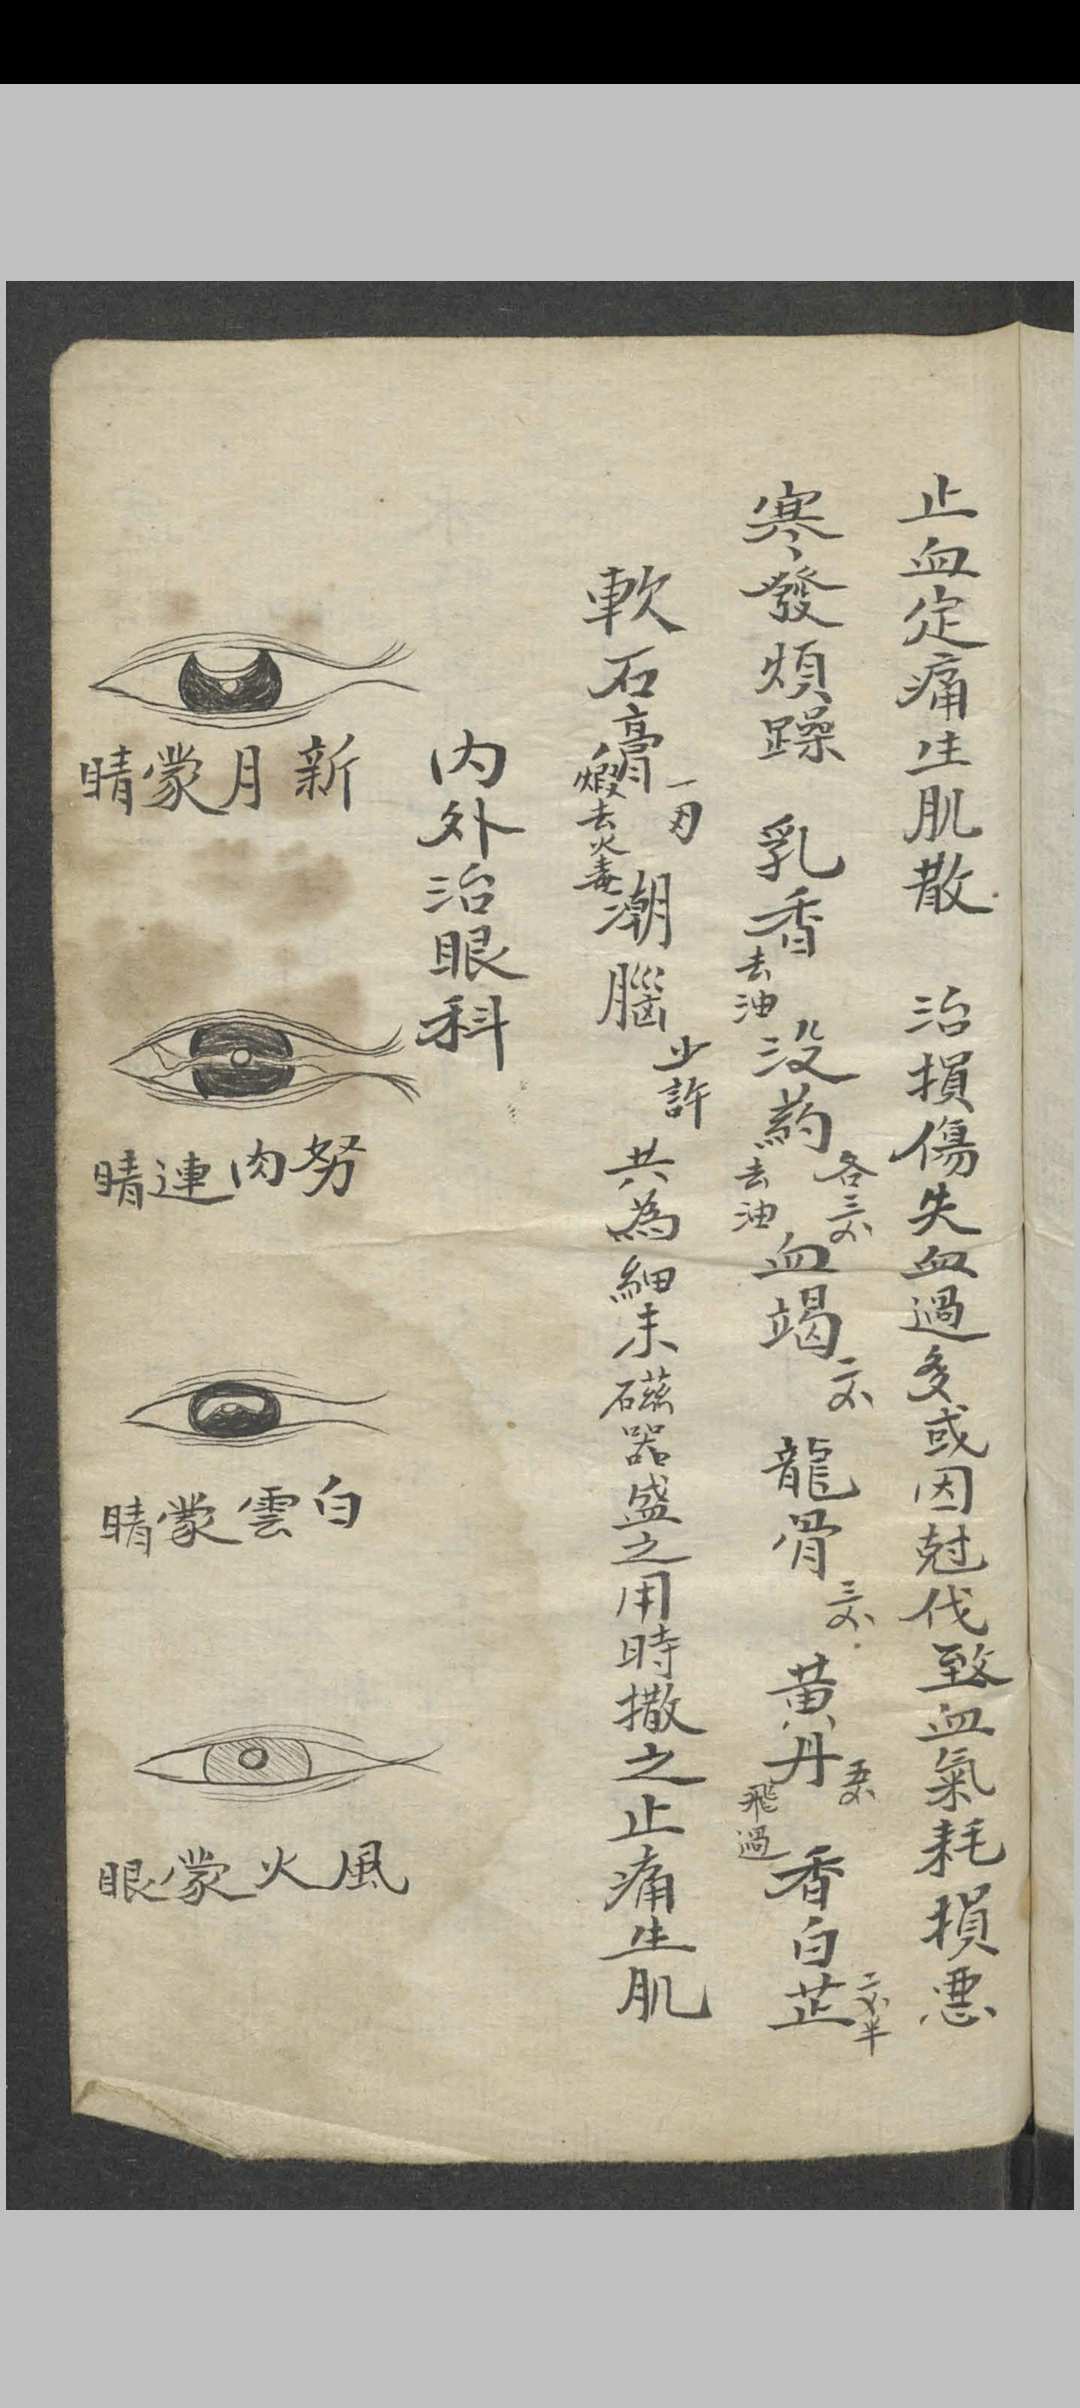 止血定痛生肌散　治損傷失血過多或因尅伐致血氣耗損惡
寒發煩躁　乳香去油没葯去油各三錢血竭二錢龍骨三錢黄丹飛過五錢香白芷二錢半
軟石膏煅去火毒一両潮腦少許共為細末磁器盛之用時撒之止痛生肌
内外治眼科
新月蒙睛
努肉連睛
白雲蒙睛
風火蒙眼